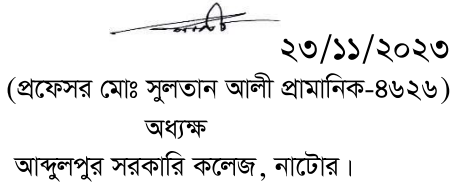 ২৩/১১/২০২৩
(প্রফেসর মোঃ সুলতান আলী প্রামানিক-৪৬২৬)
অধ্যক্ষ
আব্দুলপুর সরকারি কলেজ, নাটোর।